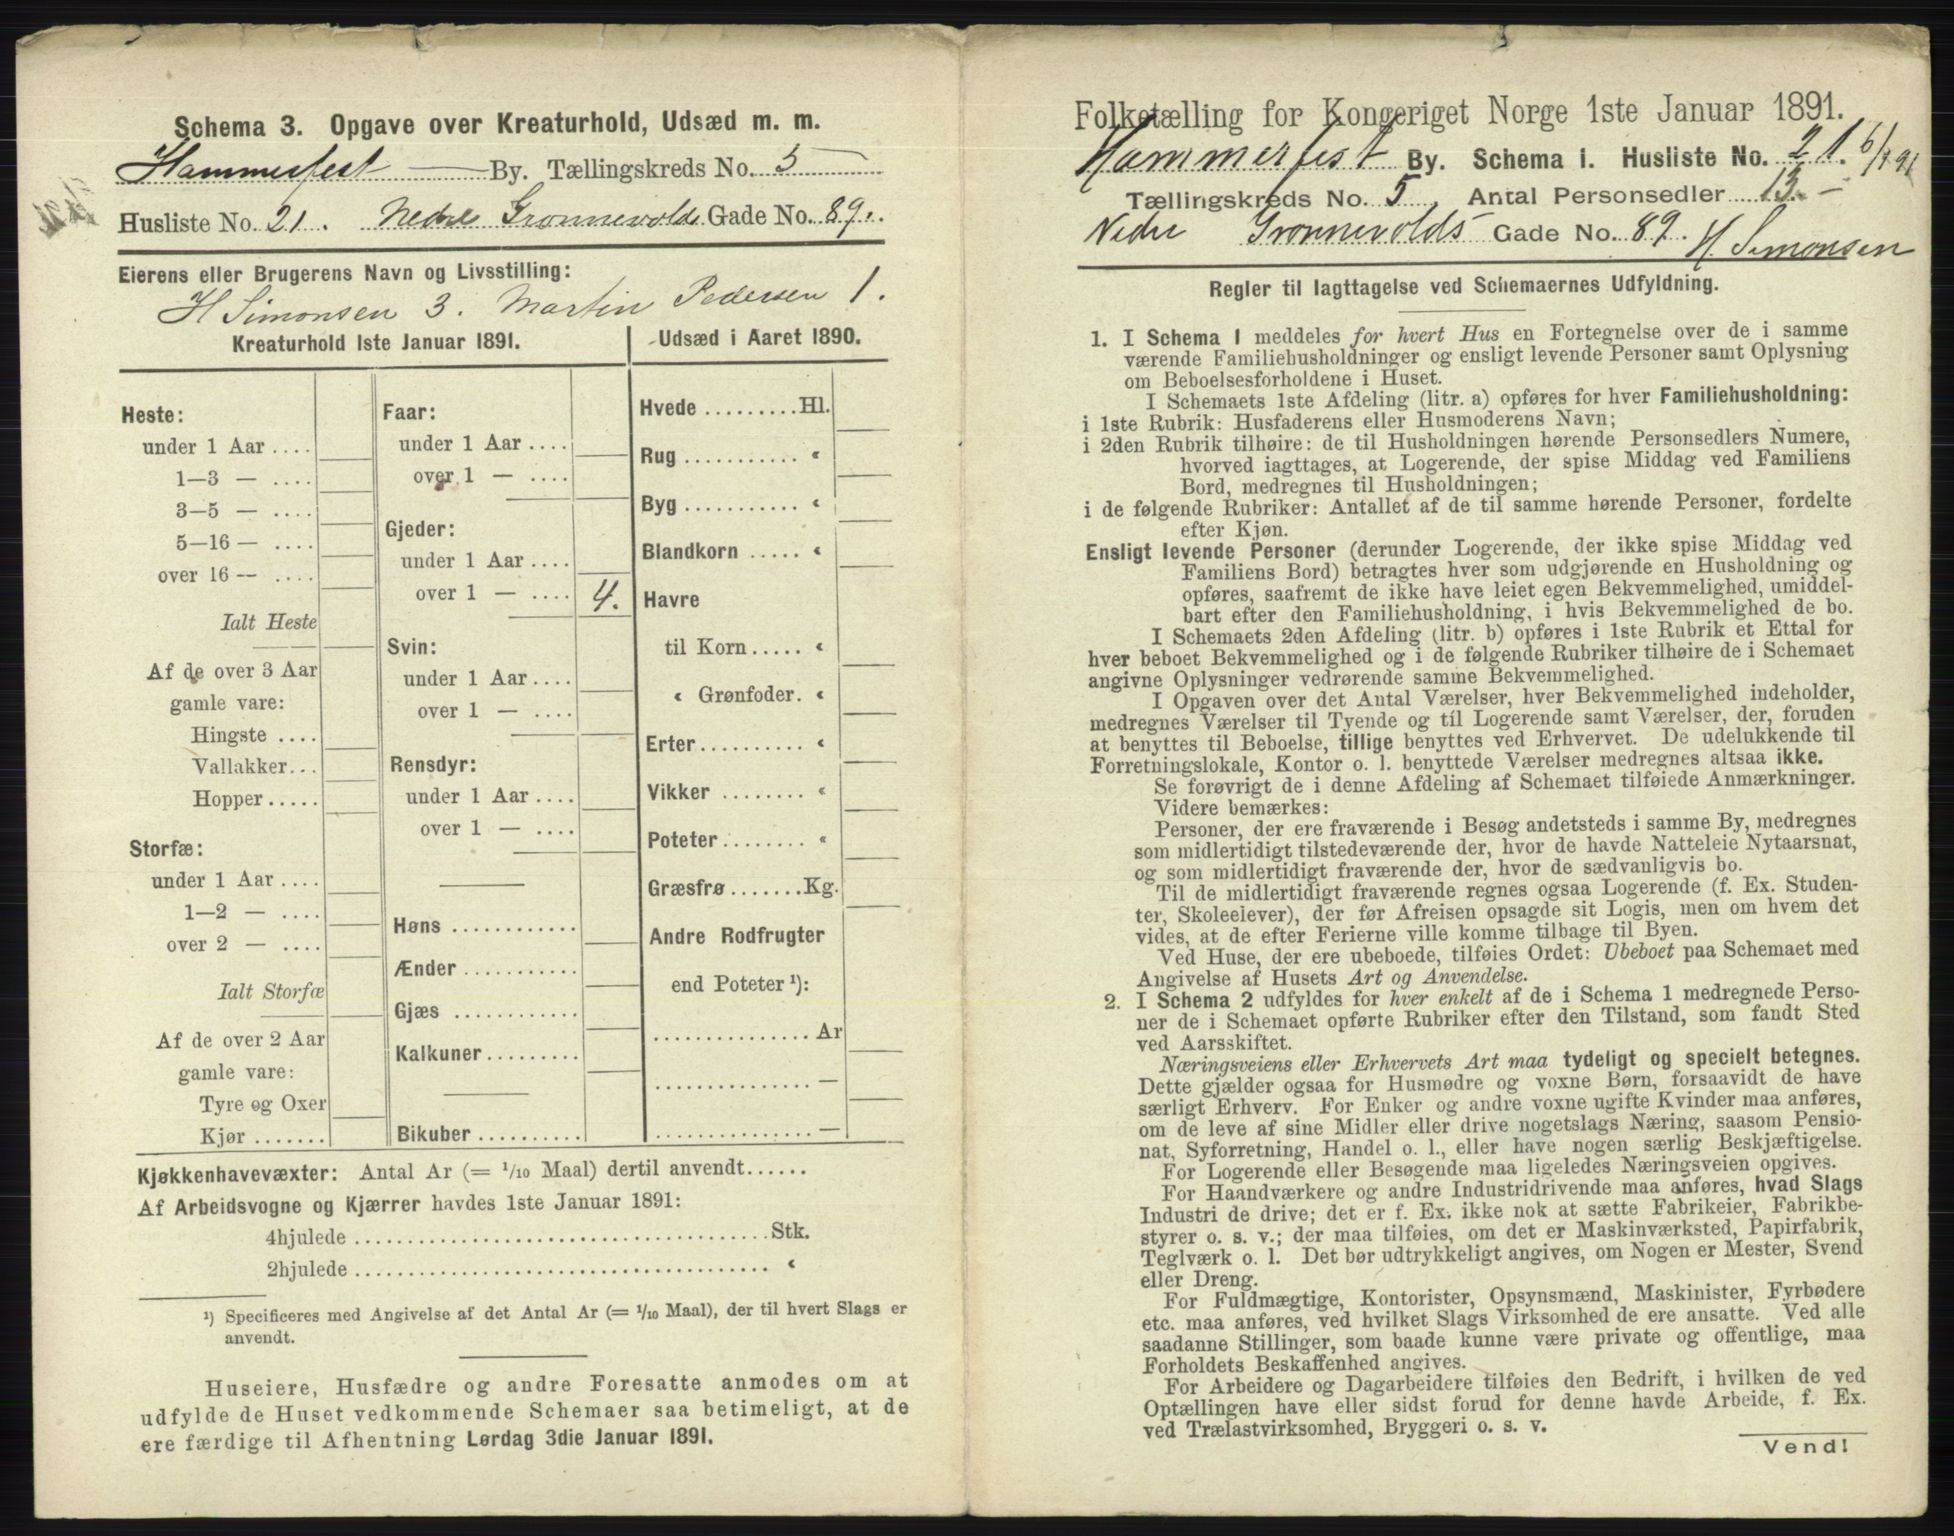 Schema 3. Opgave over Kreaturhold, Udsæd m. m.
Hammerfest By. Tællingskreds No. 5
Husliste No. 21. Nedre Grønnevolds Gade No. 89.
Eierens eller Brugerens Navn og Livsstilling:
H Simonsen 3. Martin Pedersen 1.
Kreaturhold 1ste Januar 1891.
Heste:
under 1 Aar ....
1—3 — ....
3—5 — ....
5—16 — ....
over 16 — ....
Ialt Heste
Af de over 3 Aar
gamle vare:
Hingste ....
Vallakker...
Hopper .....
Storfæ:
under 1 Aar ....
1—2 — ....
over 2 — ....
Ialt Storfæ
Af de over 2 Aar
gamle vare:
Tyre og Oxer
Kjør .......
Faar:
under 1 Aar ....
over 1 — ....
Gjeder:
under 1 Aar ....
over 1 — .... 4.
Svin:
under 1 Aar ....
over 1 — ....
Rensdyr:
under 1 Aar ....
over 1 — ....
Høns ............
Ænder ...........
Gjæs ............
Kalkuner .........
Bikuber ..........
Udsæd i Aaret 1890.
Hvede ......... Hl.
Rug ........... “
Byg ........... “
Blandkorn ..... “
Havre
til Korn ..... “
“ Grønfoder. “
Erter .......... “
Vikker ........ “
Poteter ........ “
Græsfrø ....... Kg.
Andre Rodfrugter
end Poteter ¹):
............... Ar
............... —
............... —
Kjøkkenhavevæxter: Antal Ar (= 1/10 Maal) dertil anvendt......
Af Arbeidsvogne og Kjærrer havdes 1ste Januar 1891:
4hjulede ........................................ Stk.
2hjulede ........................................ “
¹) Specificeres med Angivelse af det Antal Ar (= 1/10 Maal), der til hvert Slags er
anvendt.
Huseiere, Husfædre og andre Foresatte anmodes om at
udfylde de Huset vedkommende Schemaer saa betimeligt, at de
ere færdige til Afhentning Lørdag 3die Januar 1891.
Folketælling for Kongeriget Norge 1ste Januar 1891.
Hammerfest By. Schema 1. Husliste No. 21.
Tællingskreds No. 5. Antal Personsedler 13.
Nedre Grønnevolds Gade No. 89 H. Simonsen
Regler til Iagttagelse ved Schemaernes Udfyldning.
1. I Schema 1 meddeles for hvert Hus en Fortegnelse over de i samme
værende Familiehusholdninger og ensligt levende Personer samt Oplysning
om Beboelsesforholdene i Huset.
I Schemaets 1ste Afdeling (litr. a) opføres for hver Familiehusholdning:
i 1ste Rubrik: Husfaderens eller Husmoderens Navn;
i 2den Rubrik tilhøire: de til Husholdningen hørende Personsedlers Numere,
hvorved iagttages, at Logerende, der spise Middag ved Familiens
Bord, medregnes til Husholdningen;
i de følgende Rubriker: Antallet af de til samme hørende Personer, fordelte
efter Kjøn.
Ensligt levende Personer (derunder Logerende, der ikke spise Middag ved
Familiens Bord) betragtes hver som udgjørende en Husholdning og
opføres, saafremt de ikke have leiet egen Bekvemmelighed, umiddel-
bart efter den Familiehusholdning, i hvis Bekvemmelighed de bo.
I Schemaets 2den Afdeling (litr. b) opføres i 1ste Rubrik et Ettal for
hver beboet Bekvemmelighed og i de følgende Rubriker tilhøire de i Schemaet
angivne Oplysninger vedrørende samme Bekvemmelighed.
I Opgaven over det Antal Værelser, hver Bekvemmelighed indeholder,
medregnes Værelser til Tyende og til Logerende samt Værelser, der, foruden
at benyttes til Beboelse, tillige benyttes ved Erhvervet. De udelukkende til
Forretningslokale, Kontor o. l. benyttede Værelser medregnes altsaa ikke.
Se forøvrigt de i denne Afdeling af Schemaet tilføiede Anmærkninger.
Videre bemærkes:
Personer, der ere fraværende i Besøg andetsteds i samme By, medregnes
som midlertidigt tilstedeværende der, hvor de havde Natteleie Nytaarsnat,
og som midlertidigt fraværende der, hvor de sædvanligvis bo.
Til de midlertidigt fraværende regnes ogsaa Logerende (f. Ex. Studen-
ter, Skoleelever), der før Afreisen opsagde sit Logis, men om hvem det
vides, at de efter Ferierne ville komme tilbage til Byen.
Ved Huse, der ere ubeboede, tilføies Ordet: Ubeboet paa Schemaet med
Angivelse af Husets Art og Anvendelse.
2. I Schema 2 udfyldes for hver enkelt af de i Schema 1 medregnede Perso-
ner de i Schemaet opførte Rubriker efter den Tilstand, som fandt Sted
ved Aarsskiftet.
Næringsveiens eller Erhvervets Art maa tydeligt og specielt betegnes.
Dette gjælder ogsaa for Husmødre og voxne Børn, forsaavidt de have
særligt Erhverv. For Enker og andre voxne ugifte Kvinder maa anføres,
om de leve af sine Midler eller drive nogetslags Næring, saasom Pensio-
nat, Syforretning, Handel o. l., eller have nogen særlig Beskjæftigelse.
For Logerende eller Besøgende maa ligeledes Næringsveien opgives.
For Haandværkere og andre Industridrivende maa anføres, hvad Slags
Industri de drive; det er f. Ex. ikke nok at sætte Fabrikeier, Fabrikbe-
styrer o. s. v.; der maa tilføies, om det er Maskinværksted, Papirfabrik,
Teglværk o. l. Det bør udtrykkeligt angives, om Nogen er Mester, Svend
eller Dreng.
For Fuldmægtige, Kontorister, Opsynsmænd, Maskinister, Fyrbødere
etc. maa anføres, ved hvilket Slags Virksomhed de ere ansatte. Ved alle
saadanne Stillinger, som baade kunne være private og offentlige, maa
Forholdets Beskaffenhed angives.
For Arbeidere og Dagarbeidere tilføies den Bedrift, i hvilken de ved
Optællingen have eller sidst forud for denne havde Arbeide, f. Ex.
ved Trælastvirksomhed, Bryggeri o. s. v.
Vend!